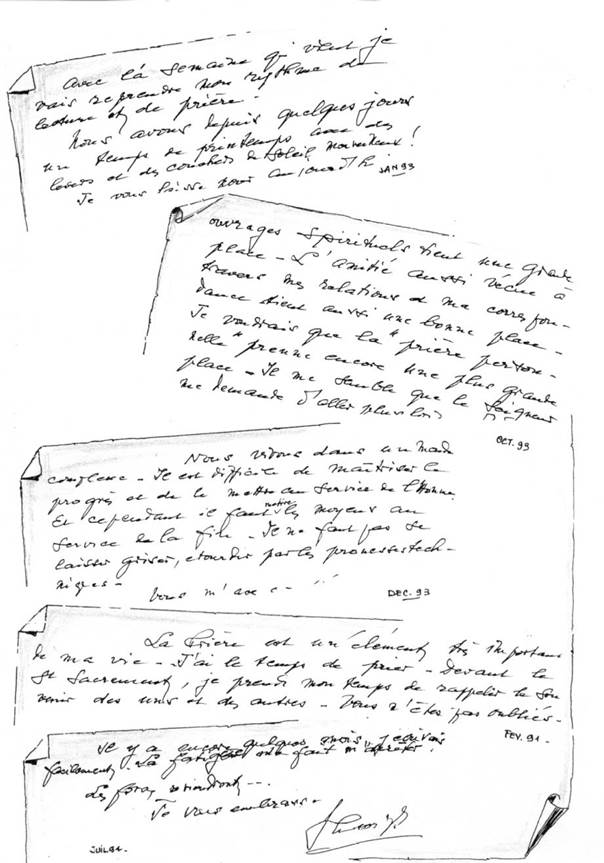 Avec la semaine qui vient je
vais reprendre mon rythme de
lecture et de prière.
Nous avons depuis quelques jours
un temps de printemps avec des
levers et des couchers de soleil merveilleux !
Je vous laisse pour aujourd'hui.
JAN 93
ouvrages spirituels tient une grande
place - L'amitié aussi vécue à
travers mes relations et ma correspon-
dance tient aussi une bonne place -
Je voudrais que la "prière person-
nelle" prenne encore une plus grande
place - Il me semble que le Seigneur
me demande d'aller plus loin
OCT. 93
Nous vivons dans un monde
complexe - Il est difficile de maîtriser le
progrès et de le mettre au service de l'Homme,
Et cependant il faut mettre les moyens au
service de la fin - Il ne faut pas se
laisser griser, étourdir par les prouesses tech-
niques -
Vous m'avez
DEC. 93
La Prière est un élément très important
de ma vie - J'ai le temps de prier - Devant le
St Sacrement, je prends mon temps de rappeler le sou
venir des uns et des autres - Vous n'êtes pas oubliés -
FEV. 94 -
Il y a encore quelques mois, j'écrivais
facilement. La fatigue me fait m'arrêter.
Les forces reviendront ...
Je vous embrasse -
JUIL 94 -